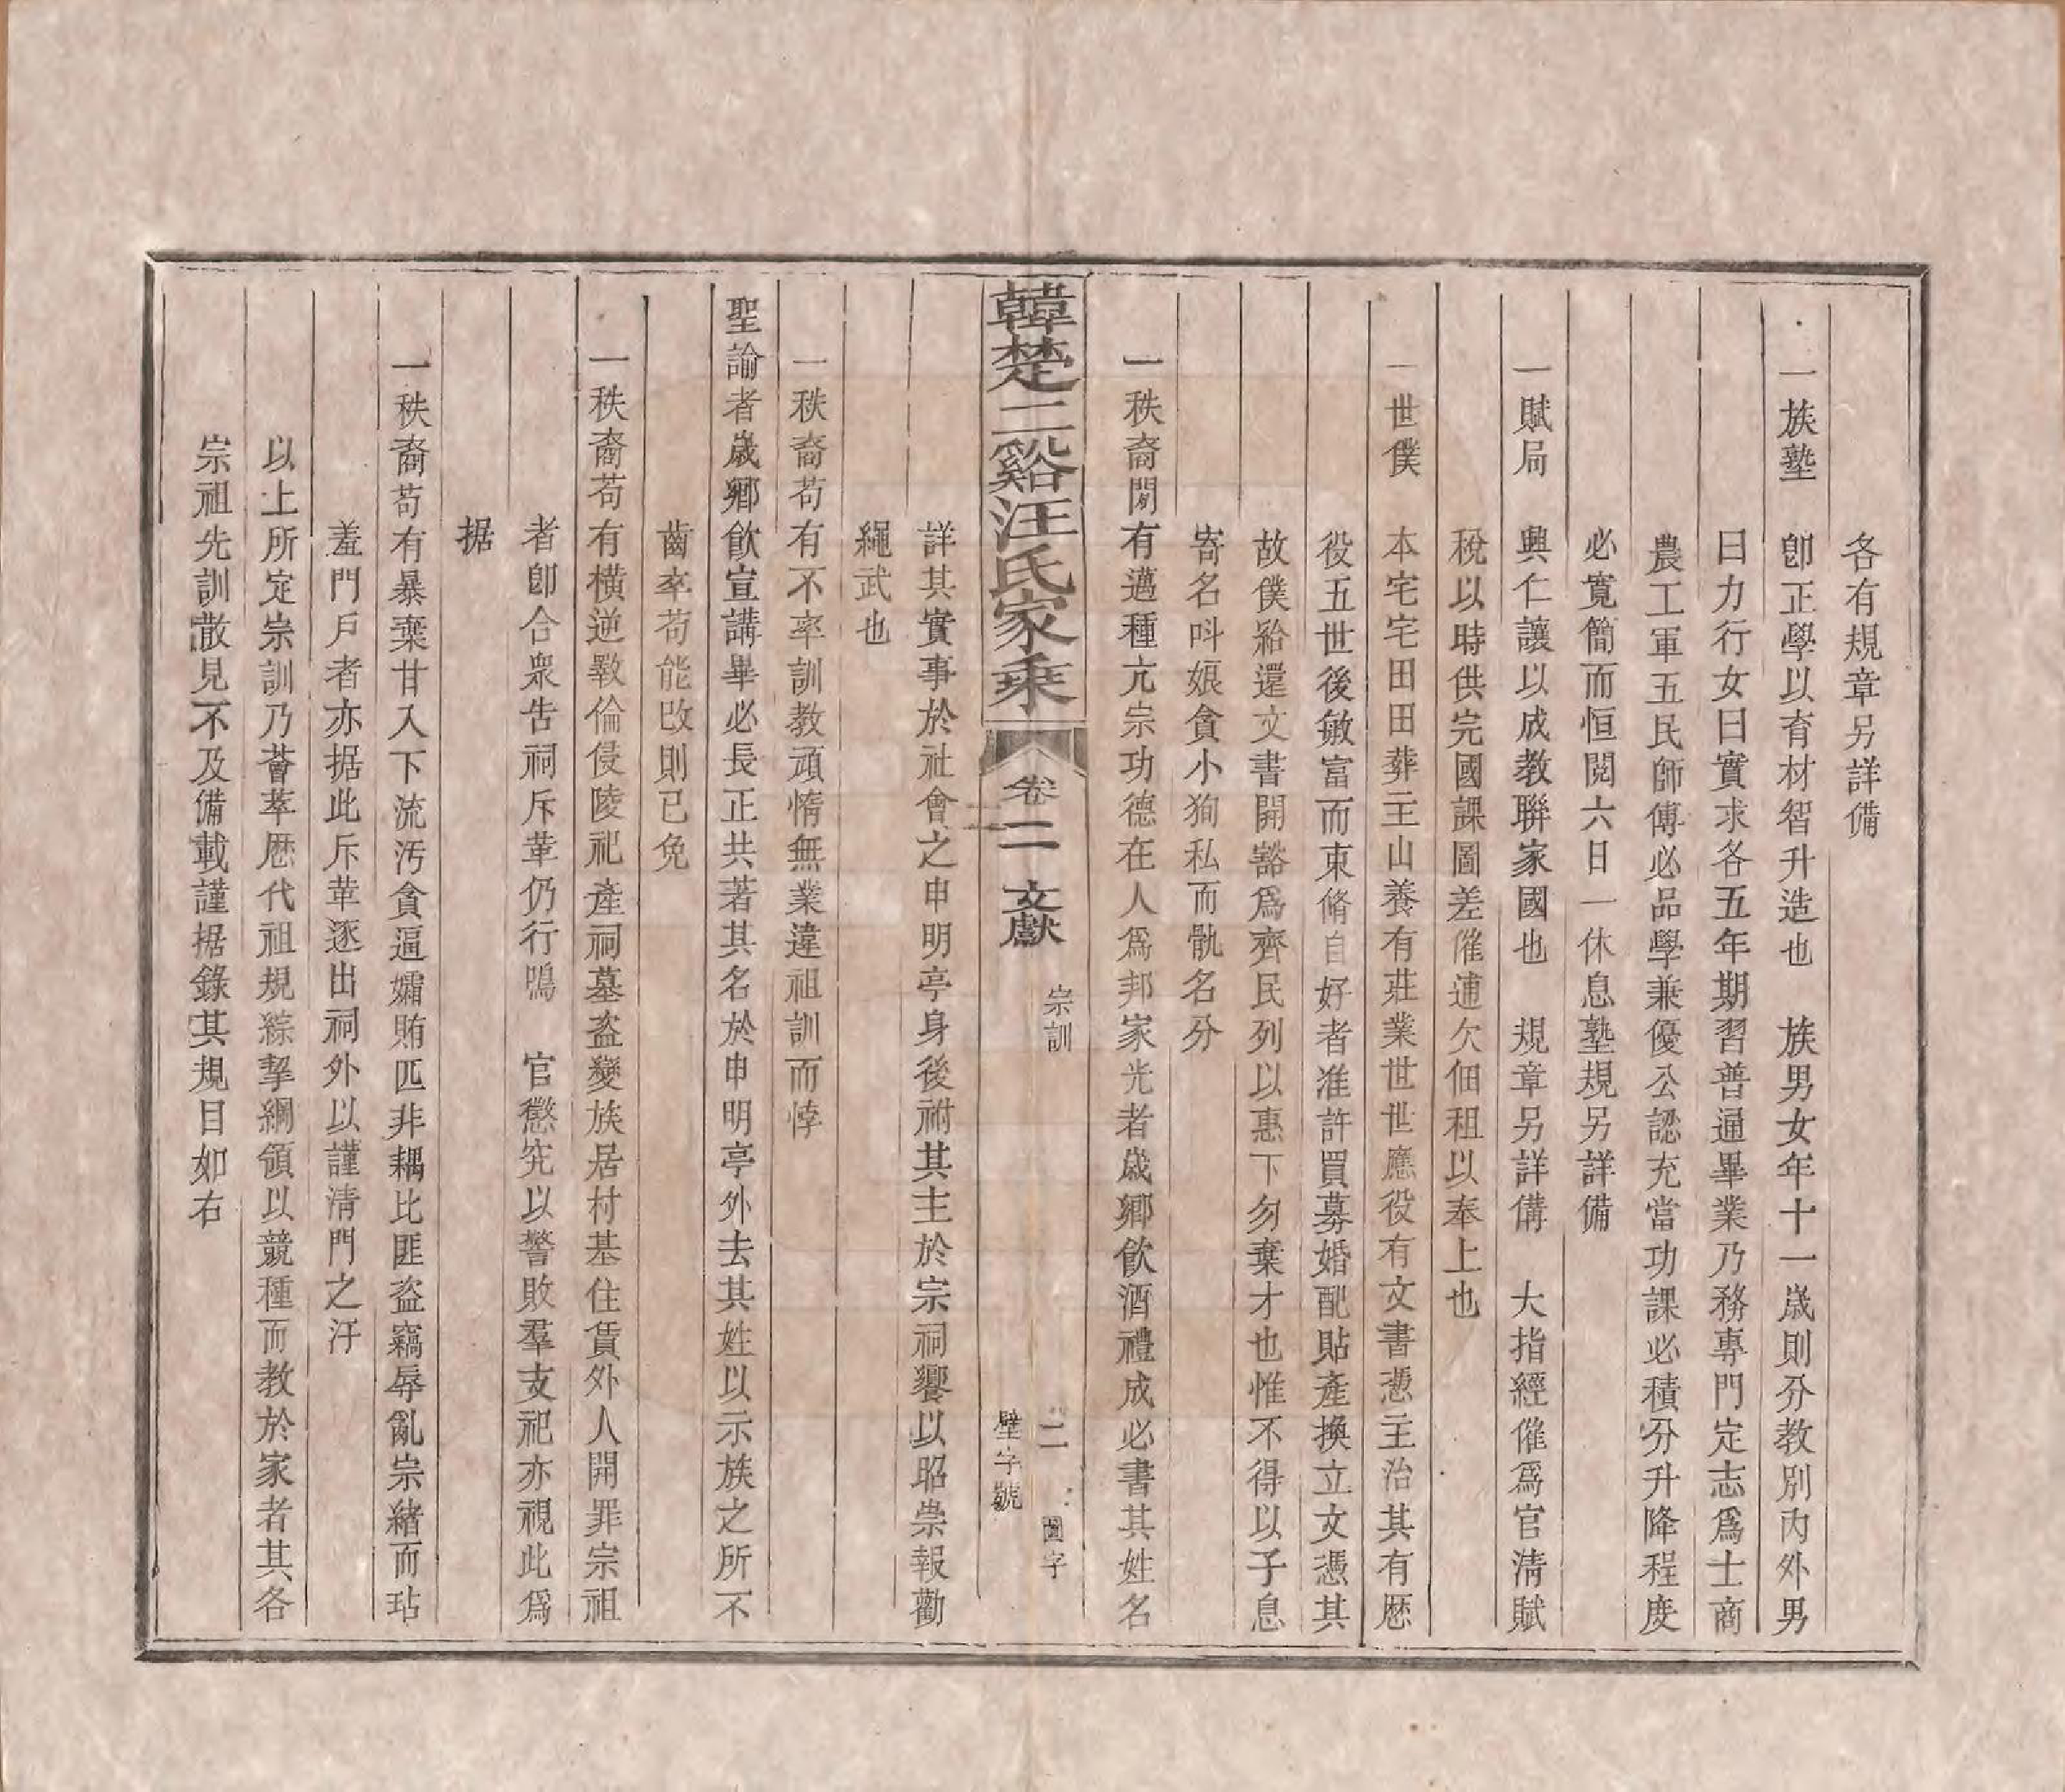 各有規章另詳備
一族塾　卽正學以育材智升造也　族男女年十一歲則分教別內外男
曰力行女曰實求各五年期習普通畢業乃務專門定志爲士商
農工軍五民師傅必品學兼優公認充當功課必積分升降程度
必寬簡而恒閱六日一休息塾規另詳備
一賦局　興仁讓以成教聯家國也　規章另詳備　大指經催爲官淸賦
稅以時供完國課圖差催逋欠佃租以奉上也
一世僕　本宅宅田田葬主山養有莊業世世應役有文書憑主治其有歷
役五世後敏富而束脩自好者准許買募婚配貼產換立文憑其
故僕給還文書開豁爲齊民列以惠下勿棄才也惟不得以子息
寄名呌娘貪小狥私而骩名分
一秩裔閒有邁種亢宗功德在人爲邦家光者歲鄉飮酒禮成必書其姓名
韓楚二谿汪氏家乘
卷二　文獻
宗訓
二
圖字
壁字號
詳其實事於社會之申明亭身後祔其主於宗祠饗以昭崇報勸
繩武也
一秩裔苟有不率訓教頑惰無業違祖訓而悖
聖諭者歲鄉飮宣講畢必長正共著其名於申明亭外去其姓以示族之所不
齒率苟能改則已免
一秩裔苟有橫逆斁倫侵陵祀產祠墓盜變族居村基住賃外人開罪宗祖
者卽合衆告祠斥革仍行鳴　官懲究以警敗羣支祀亦視此爲
据
一秩裔苟有暴棄甘入下流汚貪逼孀賄匹非耦比匪盜竊辱亂宗緖而玷
羞門戶者亦据此斥革逐出祠外以謹清門之汙
以上所定宗訓乃薈萃歷代祖規綜挈綱領以競種而教於家者其各
宗祖先訓散見不及備載謹据錄其規目如右